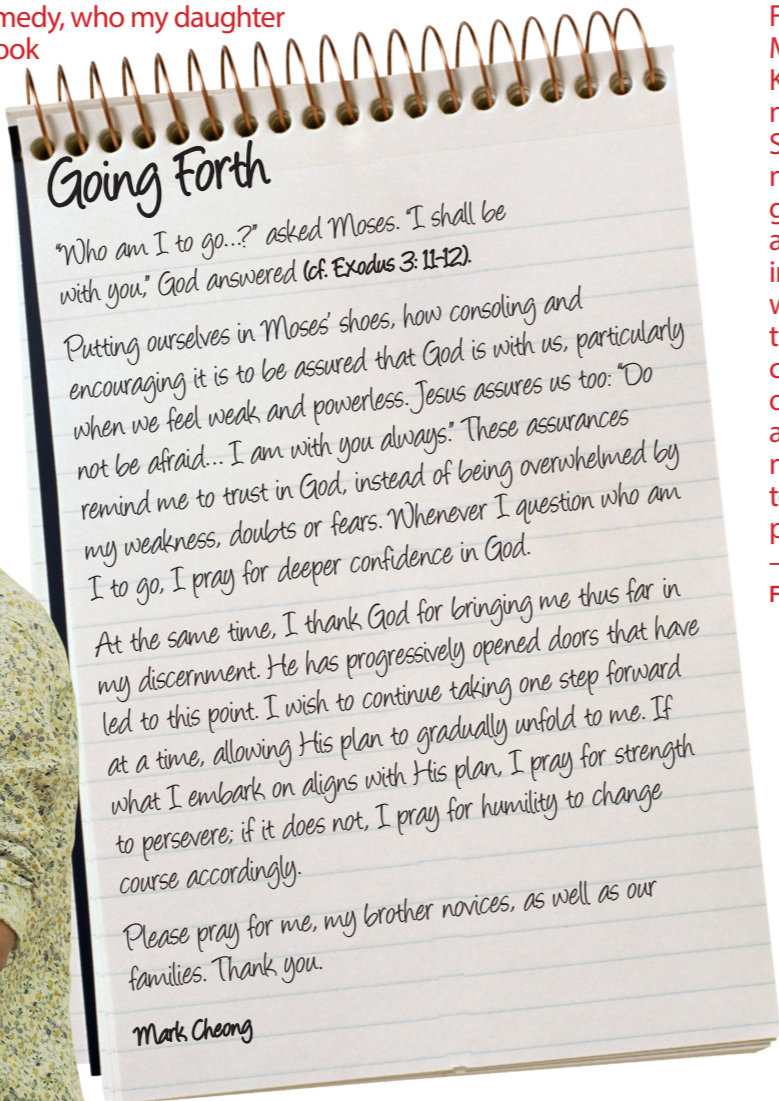 medy, who my daughter
ook
Going Forth
"Who am I to go...?" asked Moses. "I shall be
with you," God answered (cf. Exodus 3: 11-12).
Putting ourselves in Moses' shoes, how consoling and
encouraging it is to be assured that God is with us, particularly
when we feel weak and powerless. Jesus assures us too: "Do
not be afraid... I am with you always." These assurances
remind me to trust in God, instead of being overwhelmed by
my weakness, doubts or fears. Whenever I question who am
I to go, I pray for deeper confidence in God.
At the same time, I thank God for bringing me thus far in
my discernment. He has progressively opened doors that have
led to this point. I wish to continue taking one step forward
at a time, allowing His plan to gradually unfold to me. If
what I embark on aligns with His plan, I pray for strength
to persevere; if it does not, I pray for humility to change
course accordingly.
Please pray for me, my brother novices, as well as our
families. Thank you.
Mark Cheong